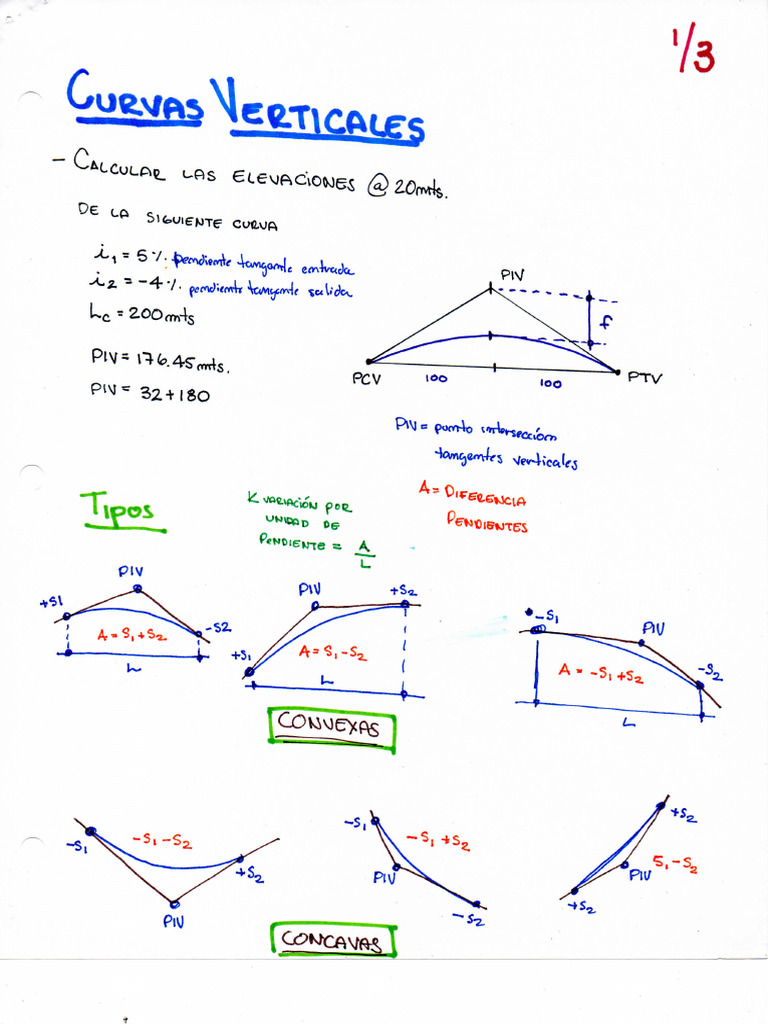 1/3
CURVAS VERTICALES
- CALCULAR LAS ELEVACIONES @ 20mts.
DE LA SIGUIENTE CURVA
i1 = 5%. pendiente tangente entrada
i2 = -4%. pendiente tangente salida
Lc = 200mts
PIV = 176.45 mts.
PIV = 32+180
PIV
f
PCV
100
100
PTV
PIV = punto intersección
tangentes verticales
A = DIFERENCIA
PENDIENTES
TIPOS
K VARIACIÓN POR
UNIDAD DE
PENDIENTE = A/L
PIV
+S1
-S2
A = S1+S2
L
PIV
+S2
+S1
A = S1 - S2
L
-S1
PIV
-S2
A = -S1+S2
L
CONVEXAS
-S1
-S1-S2
+S2
PIV
-S1
-S1+S2
PIV
-S2
+S2
S1-S2
PIV
+S2
CONCAVAS